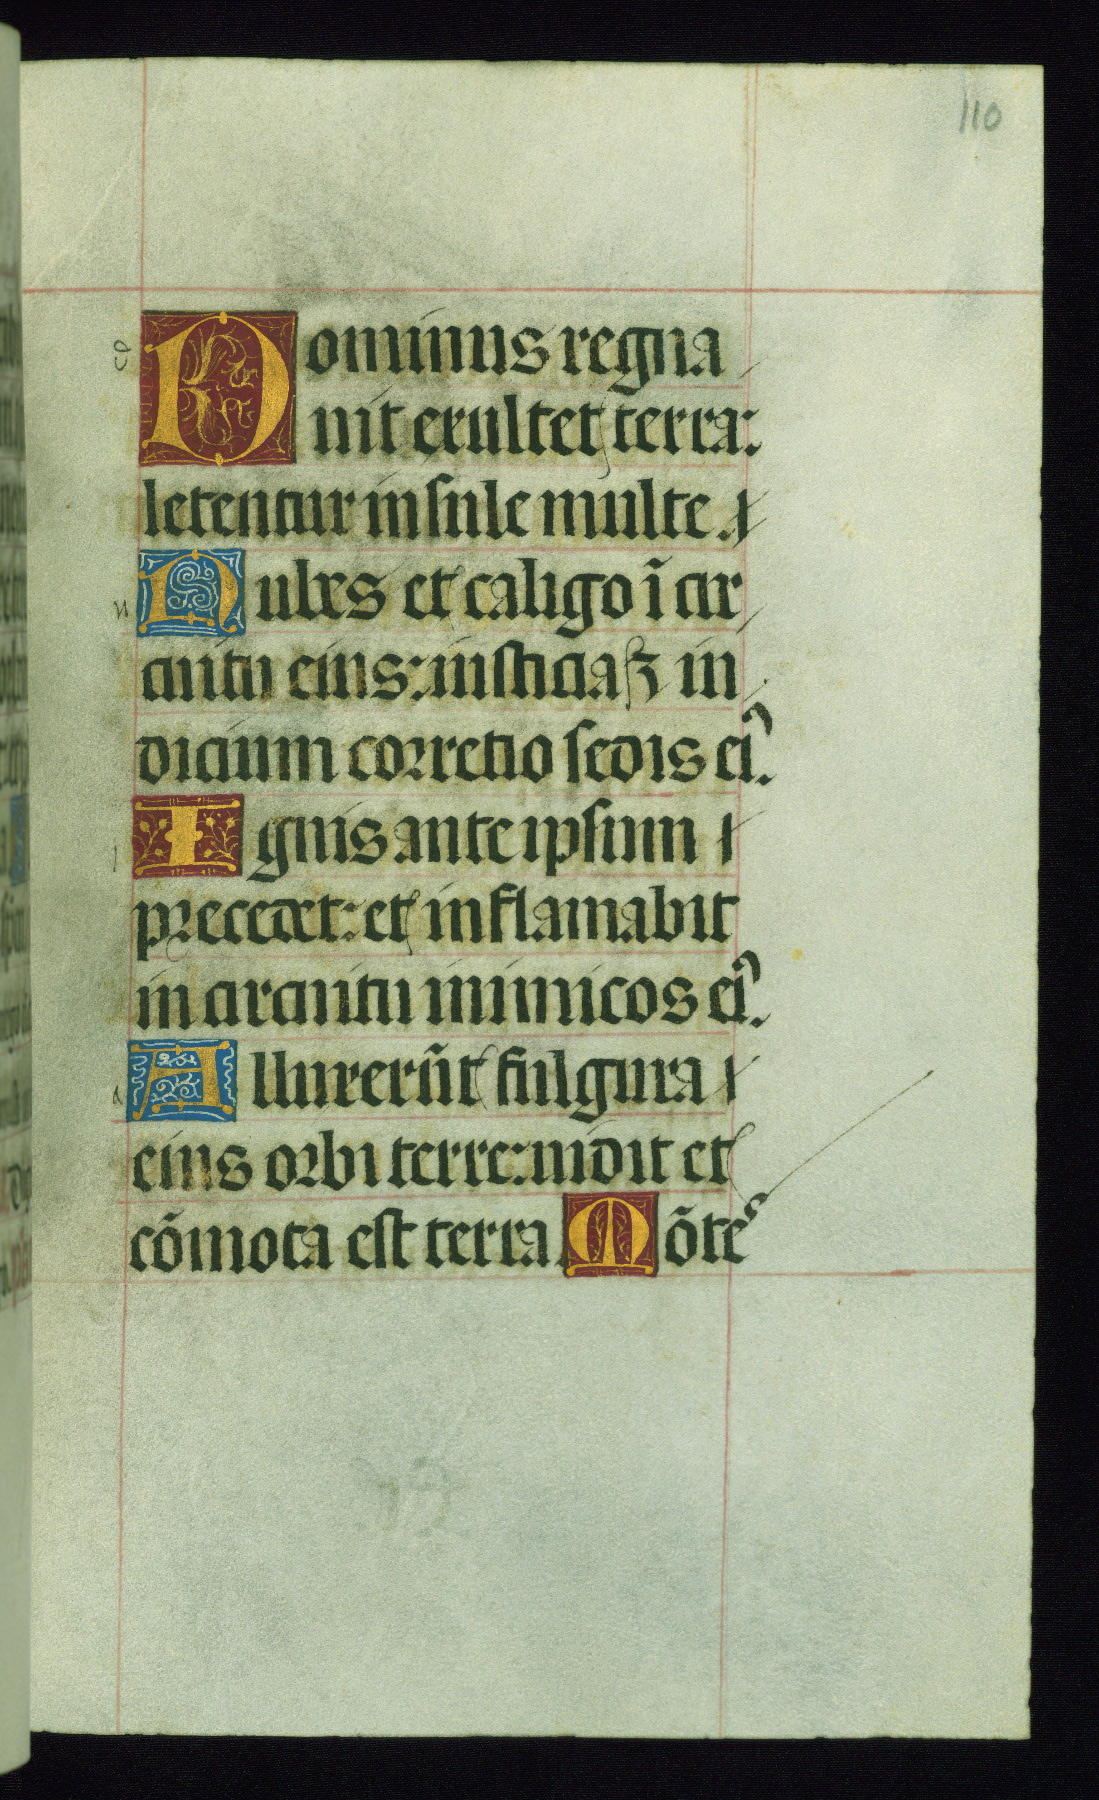 110
Dominus regna
uit exultet terra:
letentur insule multe.
Nubes et caligo ī cir
cuitu eius: iusticia ⁊ iu
dicium correctio sedis ei᾿.
Ignis ante ipsum
precedet: et inflamabit
in circuitu inimicos ei᾿.
Alluxerūt fulgura
eius orbi terre: uidit et
cōmota est terra Mōtes